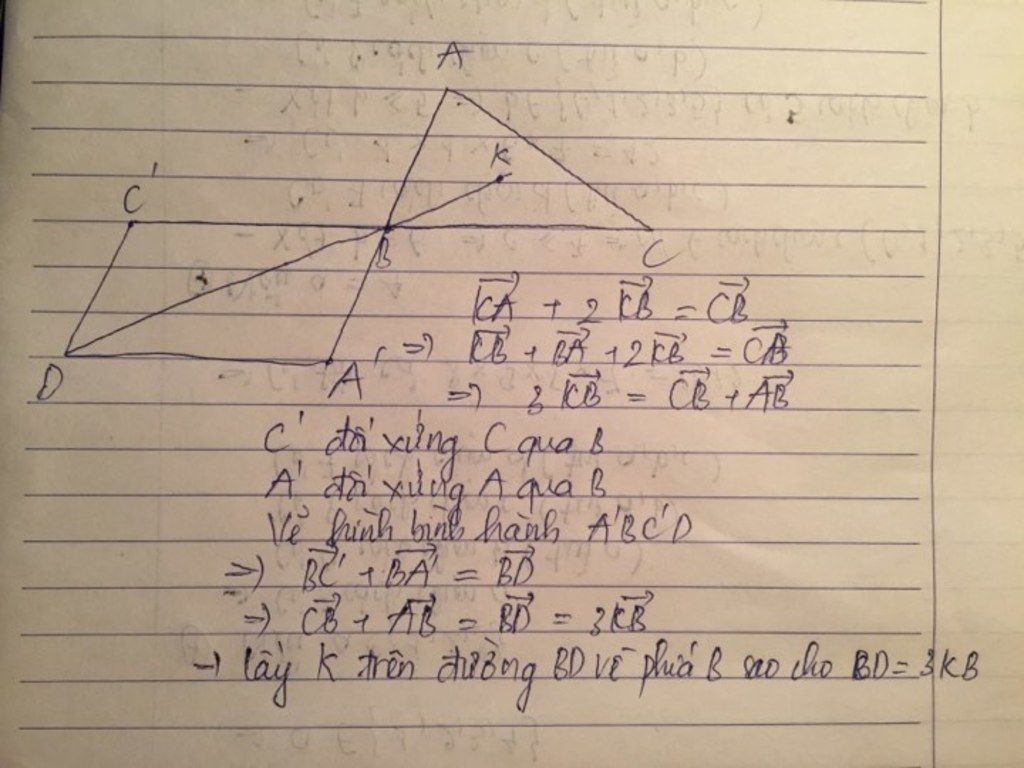 A
K
C'
B
C
D
A'
→KA + 2 →KB = →CB
=) →KB + →BA + 2→KB = →CB
=) 3 →KB = →CB + →AB
C' đối xứng C qua B
A' đối xứng A qua B
Vẽ hình bình hành A'BC'D
=) →BC' + →BA' = →BD
=) →CB + →AB = →BD = 3→KB
→ lấy K trên đường BD về phía B sao cho BD = 3KB